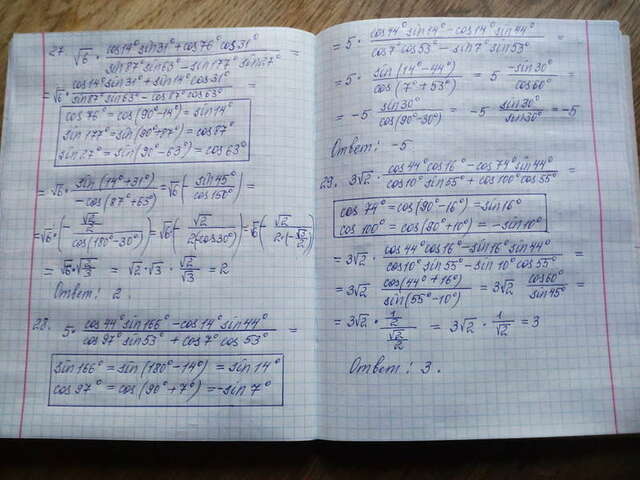 27. √6 · (cos14° sin31° + cos76° cos31°) / (sin87° sin63° − sin177° sin27°) =
= √6 · (cos14° sin31° + sin14° cos31°) / (sin87° sin63° − cos87° cos63°) =
cos76° = cos(90°−14°) = sin14°
sin177° = sin(90°+87°) = cos87°
sin27° = sin(90°−63°) = cos63°
= √6 · sin(14°+31°) / −cos(87°+63°) = √6 (− sin45° / cos150°) =
= √6 · (− (√2/2) / cos(180°−30°)) = √6 (− √2 / 2(−cos30°)) = √6 (− √2 / 2·(−√3/2))
= √6 · √2/√3 = √2 · √3 · √2/√3 = 2
Ответ: 2.
28. 5 · (cos44° sin166° − cos14° sin44°) / (cos97° sin53° + cos7° cos53°) =
sin166° = sin(180°−14°) = sin14°
cos97° = cos(90°+7°) = −sin7°
= 5 · (cos44° sin14° − cos14° sin44°) / (cos7° cos53° − sin7° sin53°) =
= 5 · sin(14°−44°) / cos(7°+53°) = 5 −sin30° / cos60° =
= −5 sin30° / cos(90°−30°) = −5 sin30° / sin30° = −5
Ответ: −5
29. 3√2 · (cos44° cos16° − cos74° sin44°) / (cos10° sin55° + cos100° cos55°) =
cos74° = cos(90°−16°) = sin16°
cos100° = cos(90°+10°) = −sin10°
= 3√2 · (cos44° cos16° − sin16° sin44°) / (cos10° sin55° − sin10° cos55°) =
= 3√2 cos(44°+16°) / sin(55°−10°) = 3√2 cos60° / sin45° =
= 3√2 · (1/2) / (√2/2) = 3√2 · 1/√2 = 3
Ответ: 3.